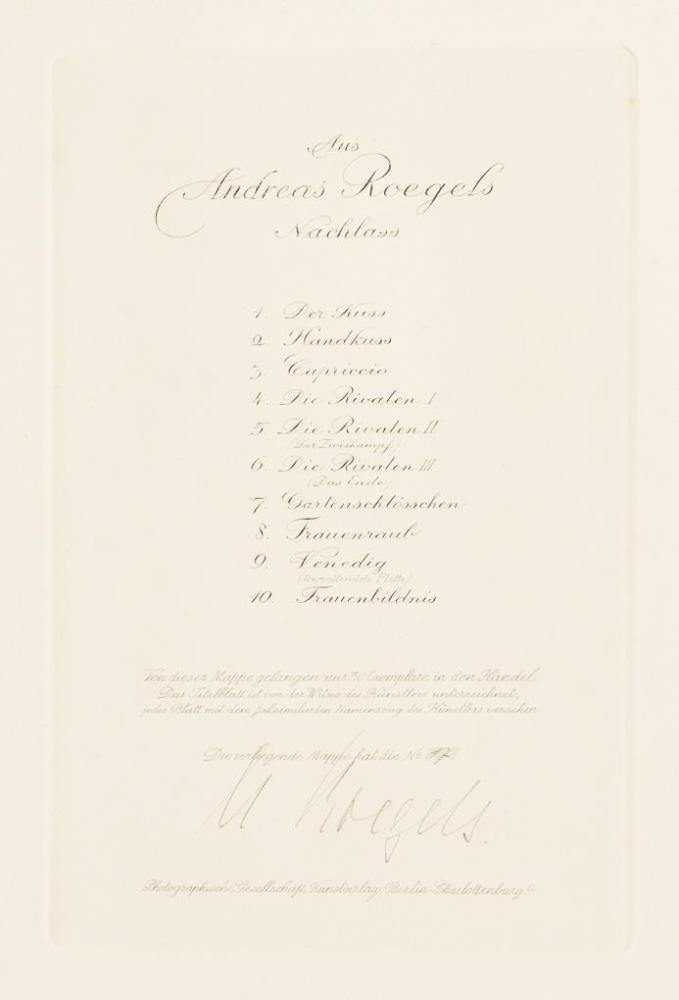 Aus
Andreas Roegels
Nachlass
1. Der Kuss
2. Handkuss
3. Capriccio
4. Die Rivalen I
5. Die Rivalen II
(Der Zweikampf)
6. Die Rivalen III
(Das Ende)
7. Gartenschlösschen
8. Frauenraub
9. Venedig
(Unvollendete Platte)
10. Frauenbildnis
Von dieser Mappe gelangen nur 30 Exemplare in den Handel
Das Titelblatt ist von der Witwe des Künstlers unterzeichnet,
jedes Blatt mit dem faksimilierten Namenszug des Künstlers versehen
Die vorliegende Mappe hat die Nr.
Roegels.
Photographische Gesellschaft, Kunstverlag, Berlin-Charlottenburg 9